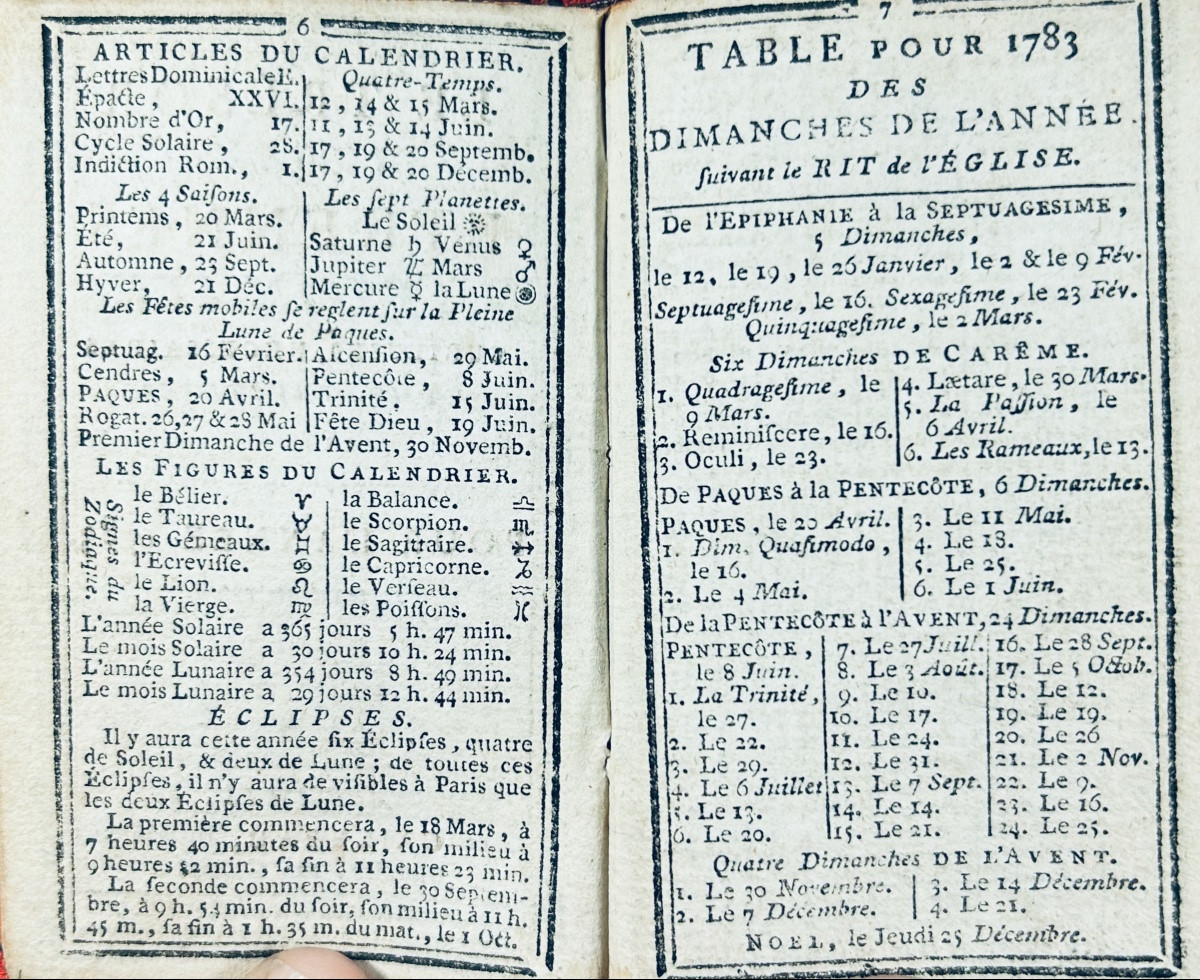 6
ARTICLES DU CALENDRIER.
Lettres Dominicale E.
Épacte, XXVI.
Nombre d'Or, 17.
Cycle Solaire, 28.
Indiction Rom., 1.
Quatre-Temps.
12, 14 & 15 Mars.
11, 13 & 14 Juin.
17, 19 & 20 Septemb.
17, 19 & 20 Décemb.
Les 4 Saiſons.
Printems, 20 Mars.
Été, 21 Juin.
Automne, 23 Sept.
Hyver, 21 Déc.
Les ſept Planettes.
Le Soleil ☼
Saturne ♄ Vénus ♀
Jupiter ♃ Mars ♂
Mercure ☿ la Lune
Les Fêtes mobiles ſe reglent ſur la Pleine
Lune de Paques.
Septuag. 16 Février.
Cendres, 5 Mars.
PAQUES, 20 Avril.
Rogat. 26, 27 & 28 Mai
Aſcenſion, 29 Mai.
Pentecôte, 8 Juin.
Trinité, 15 Juin.
Fête Dieu, 19 Juin.
Premier Dimanche de l'Avent, 30 Novemb.
LES FIGURES DU CALENDRIER.
Signes du
Zodiaque.
le Bélier. ♈
le Taureau. ♉
les Gémeaux. ♊
l'Ecreviſſe. ♋
le Lion. ♌
la Vierge. ♍
la Balance. ♎
le Scorpion. ♏
le Sagittaire. ♐
le Capricorne. ♑
le Verſeau. ♒
les Poiſſons. ♓
L'année Solaire a 365 jours 5 h. 47 min.
Le mois Solaire a 30 jours 10 h. 24 min.
L'année Lunaire a 354 jours 8 h. 49 min.
Le mois Lunaire a 29 jours 12 h. 44 min.
ÉCLIPSES.
Il y aura cette année ſix Éclipſes, quatre
de Soleil, & deux de Lune; de toutes ces
Éclipſes, il n'y aura de viſibles à Paris que
les deux Éclipſes de Lune.
La première commencera, le 18 Mars, à
7 heures 40 minutes du ſoir, ſon milieu à
9 heures 32 min., ſa fin à 11 heures 23 min.
La ſeconde commencera, le 30 Septem-
bre, à 9 h. 54 min. du ſoir, ſon milieu à 11 h.
45 m., ſa fin à 1 h. 35 m. du mat., le 1 Oct.
7
TABLE POUR 1783
DES
DIMANCHES DE L'ANNÉE.
ſuivant le RIT de l'ÉGLISE.
De l'EPIPHANIE à la SEPTUAGESIME,
5 Dimanches,
le 12, le 19, le 26 Janvier, le 2 & le 9 Fév.
Septuageſime, le 16. Sexageſime, le 23 Fév.
Quinquageſime, le 2 Mars.
Six Dimanches DE CARÊME.
1. Quadrageſime, le
9 Mars.
2. Reminiſcere, le 16.
3. Oculi, le 23.
4. Lætare, le 30 Mars.
5. La Paſſion, le
6 Avril.
6. Les Rameaux, le 13.
De PAQUES à la PENTECÔTE, 6 Dimanches.
PAQUES, le 20 Avril.
1. Dim. Quaſimodo,
le 16.
2. Le 4 Mai.
3. Le 11 Mai.
4. Le 18.
5. Le 25.
6. Le 1 Juin.
De la PENTECÔTE à l'AVENT, 24 Dimanches.
PENTECÔTE,
le 8 Juin.
1. La Trinité,
le 27.
2. Le 22.
3. Le 29.
4. Le 6 Juillet
5. Le 13.
6. Le 20.
7. Le 27 Juill.
8. Le 3 Août.
9. Le 10.
10. Le 17.
11. Le 24.
12. Le 31.
13. Le 7 Sept.
14. Le 14.
15. Le 21.
16. Le 28 Sept.
17. Le 5 Octob.
18. Le 12.
19. Le 19.
20. Le 26
21. Le 2 Nov.
22. Le 9.
23. Le 16.
24. Le 25.
Quatre Dimanches DE L'AVENT.
1. Le 30 Novembre.
2. Le 7 Décembre.
3. Le 14 Décembre.
4. Le 21.
NOEL, le Jeudi 25 Décembre.